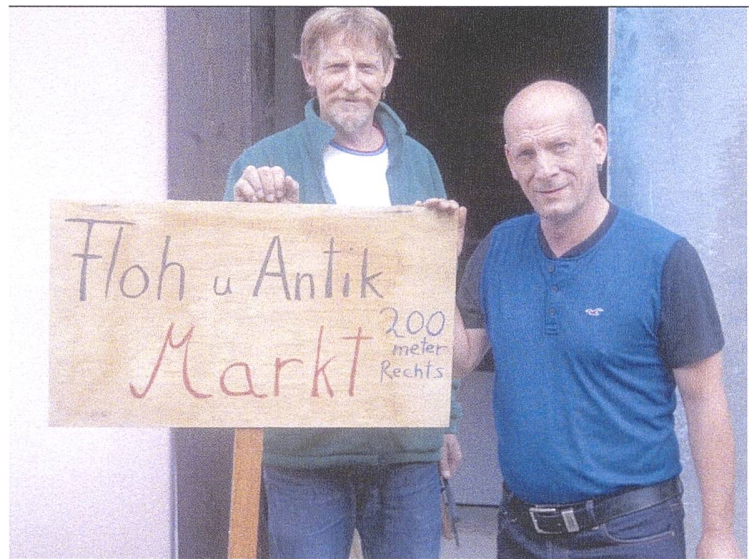 Floh u Antik
Markt
200
meter
Rechts